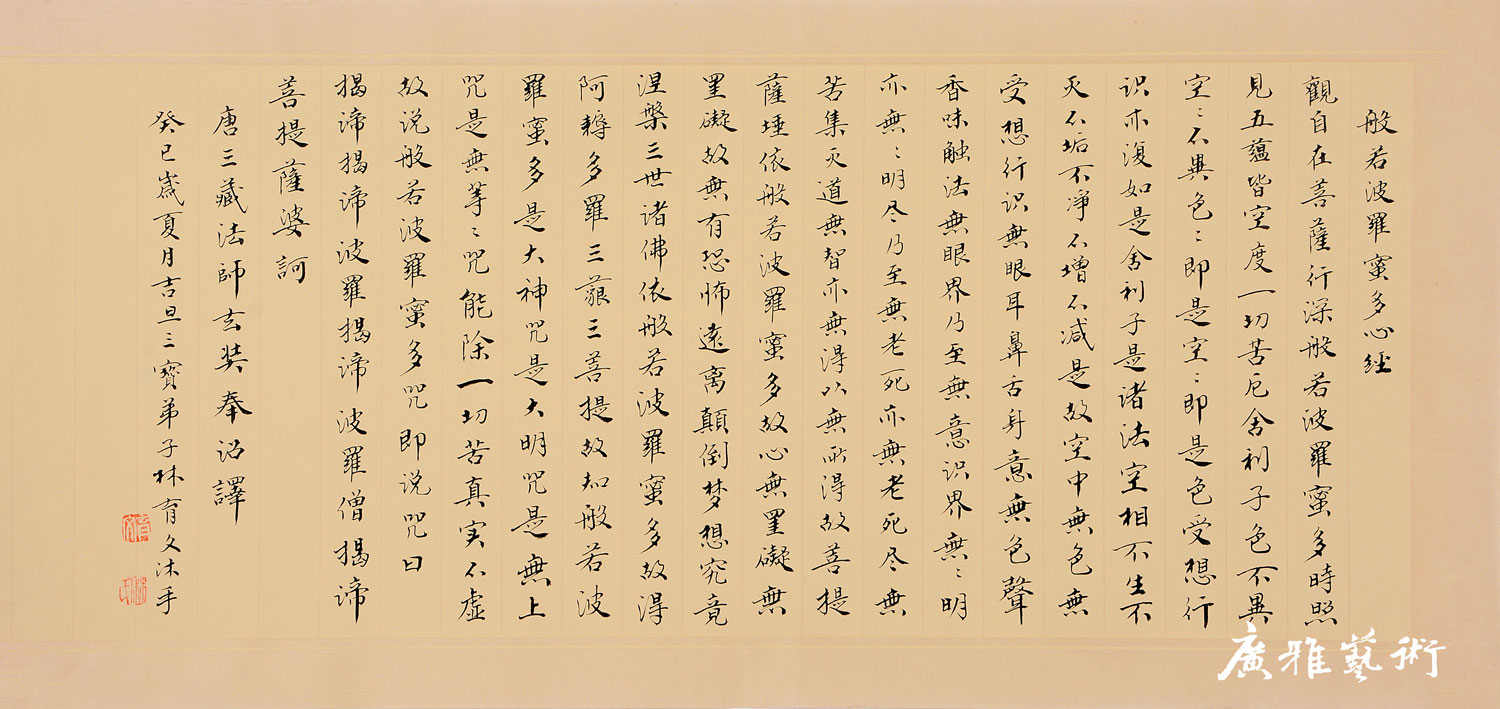 般若波羅蜜多心經
觀自在菩薩行深般若波羅蜜多時照
見五蘊皆空度一切苦厄舍利子色不異
空〻不異色〻即是空〻即是色受想行
识亦復如是舍利子是诸法空相不生不
灭不垢不凈不增不减是故空中無色無
受想行识無眼耳鼻舌身意無色聲
香味触法無眼界乃至無意识界無〻明
亦無〻明尽乃至無老死亦無老死尽無
苦集灭道無智亦無得以無所得故菩提
薩埵依般若波羅蜜多故心無罣礙無
罣礙故無有恐怖遠离顛倒梦想究竟
涅槃三世诸佛依般若波羅蜜多故得
阿耨多羅三藐三菩提故知般若波
羅蜜多是大神咒是大明咒是無上
咒是無等〻咒能除一切苦真实不虚
故说般若波羅蜜多咒即说咒曰
揭谛揭谛波羅揭谛波羅僧揭谛
菩提薩婆訶
唐三藏法師玄奘奉诏譯
癸巳嵗夏月吉旦三寶弟子林育文沐手
廣雅藝術